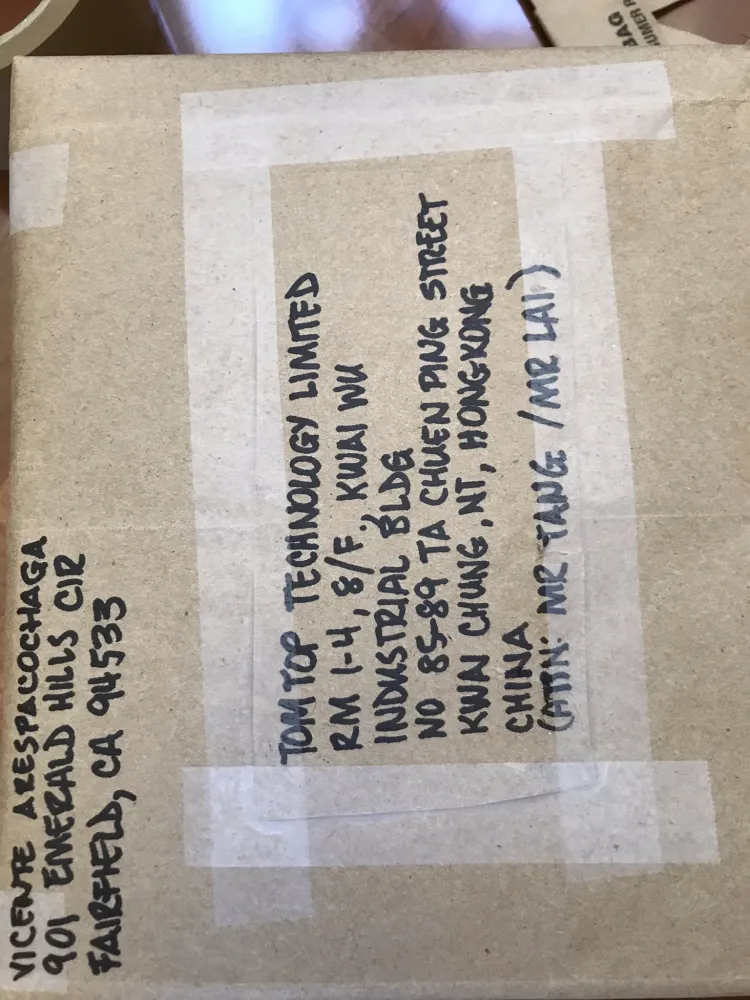 VICENTE ARESPACOCHAGA
901 EMERALD HILLS CIR
FAIRFIELD, CA 94533
TOMTOP TECHNOLOGY LIMITED
RM 1-4, 8/F, KWAI WU
INDUSTRIAL BLDG
NO 85-89 TA CHUEN PING STREET
KWAI CHUNG, NT, HONGKONG
CHINA
(ATTN: MR TANG / MR LAI)
BAG